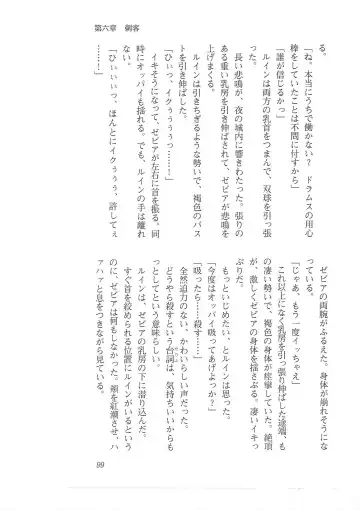 第六章　刺客
る。
「ね、本当にうちで働かない？　ドラムスの用心
棒をしていたことは不問に付すから」
「誰が信じるかっ」
ルインは両方の乳首をつまんで、双球を引っ張
った。
長い悲鳴が、夜の城内に響きわたった。張りの
ある重い乳房を引き伸ばされて、ゼビアが悲鳴を
上げまくる。
ルインは引きちぎるような勢いで、褐色のバス
トを引き伸ばした。
「ひぃっ、イクぅぅぅぅっ……！」
イキそうになって、ゼビアが左右に首を振る。同
時にオッパイも揺れる。でも、ルインの手は離れ
ない。
「ひぃぃぃっ、ほんとにイクぅぅぅ、許してぇ
……！」
ゼビアの両腕がふるえた。身体が崩れそうにな
っている。
「じゃあ、もう一度イッちゃえ」
これ以上になく乳房を引っ張り伸ばした途端、も
の凄い勢いで、褐色の身体が痙攣していた。絶頂
が、激しくゼビアの身体を揺さぶる。凄いイキっ
ぷりだ。
もっといじめたい、とルインは思った。
「今度はオッパイ吸ってあげよっか？」
「吸ったら……殺す……」
全然迫力のない、かわいらしい声だった。
どうやら殺すという台詞は、気持ちいいからも
っとしてという意味らしい。
ルインは、ゼビアの乳房の下に潜り込んだ。
すぐ首を絞められる位置にルインがいるという
のに、ゼビアは何もしなかった。頬を紅潮させ、ハ
ァハァと息をつきながら見ている。
99